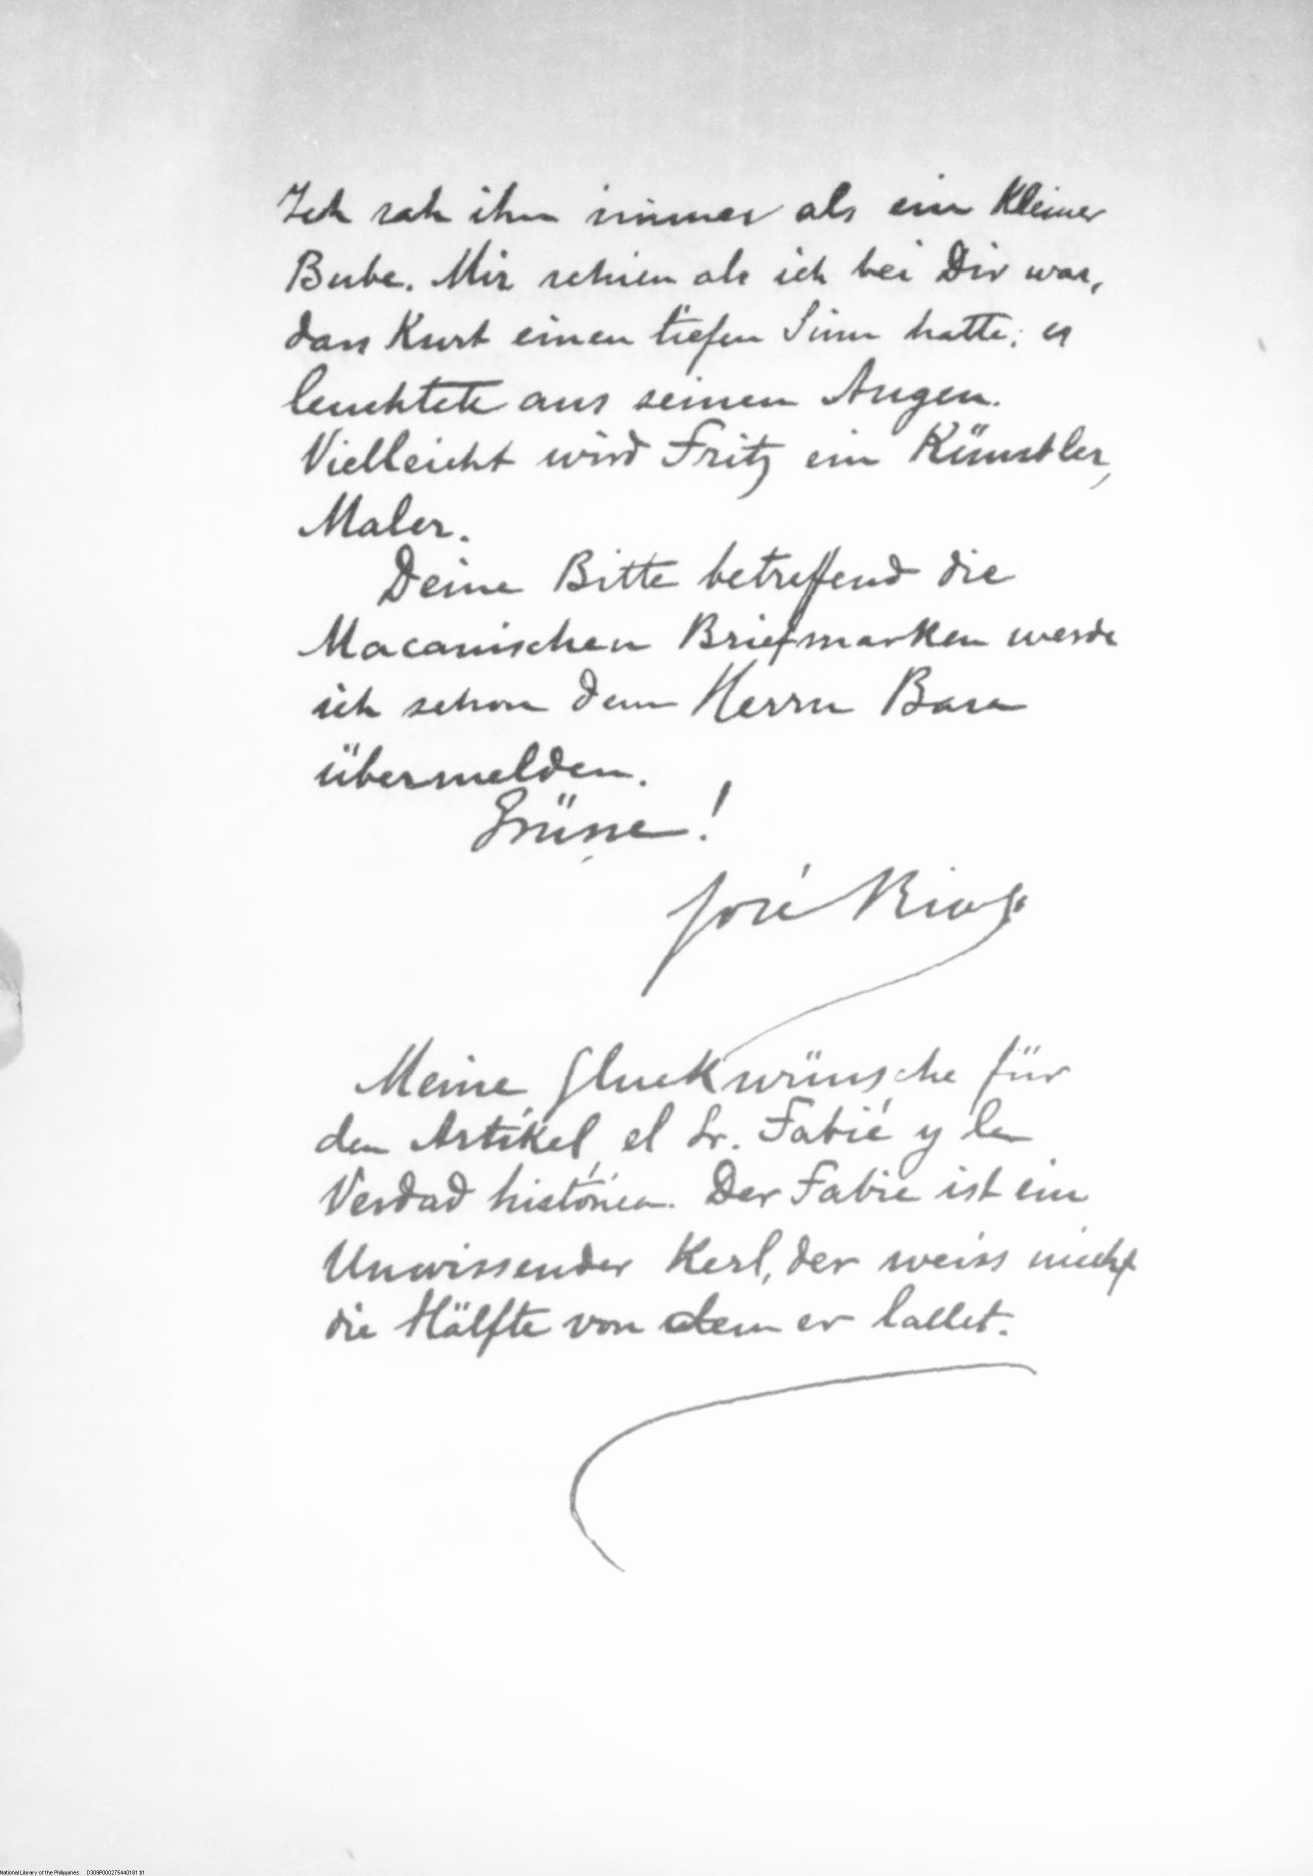 Ich sah ihn immer als ein kleiner
Bube. Mir schien als ich bei Dir war,
dass Kurt einen tiefen Sinn hatte; es
leuchtete aus seinen Augen.
Vielleicht wird Fritz ein Künstler,
Maler.
Deine Bitte betreffend die
Macanischen Briefmarken werde
ich schon dem Herrn Basa
übermelden.
Grüsse!
José Rizal
Meine Gluckwünsche für
den Artikel, el Sr. Fabié y la
Verdad histórica. Der Fabié ist ein
Unwissender Kerl, der weiss nicht
die Hälfte von dem er lallet.
National Library of the Philippines